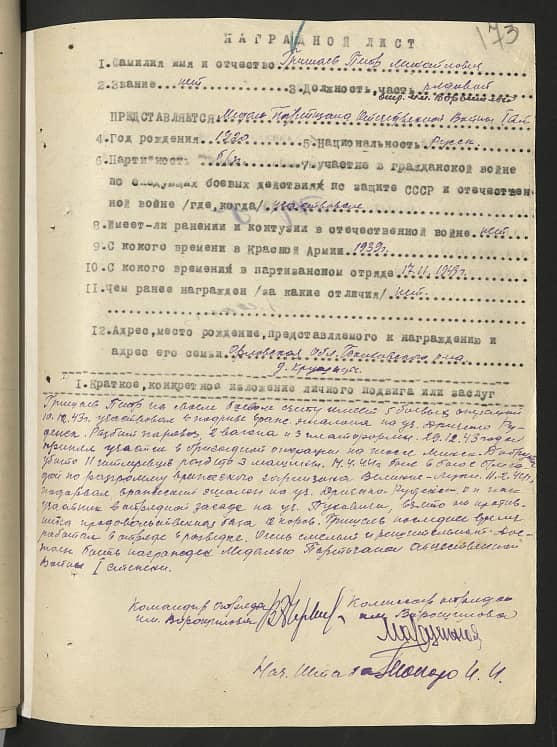 173
НАГРАДНОЙ ЛИСТ
1. Фамилия имя и отчество Гришаев Петр Михайлович
2. Звание нет 3. Должность, часть рядовой
отр. им. Ворошилова
ПРЕДСТАВЛЯЕТСЯ: Медаль Партизана Отечественной Войны I ст.
4. Год рождения 1920 5. Национальность Русск.
6. Партийность б/п 7. участие в гражданской войне
по следующих боевых действиях по защите СССР и отечествен
ной войне /где, когда/
8. Имеет-ли ранении и контузии в отечественной войне нет
9. С кокого времени в Красной Армии 1939 г.
10. С кокого времени в партизанском отряде 17.11.1943 г.
11. Чем ранее награжден /за какие отличия/ нет.
12. Адрес, место рождение, представляемого к награждению и
адрес его семьи Орловская обл. р-на
д.
I. Краткое, конкретное изложение личного подвига или заслуг
Гришаев Петр на своем боевом счету имеет 5 боевых операций
10.12.43 г. участвовал в подрыве вражеск. эшелона на уч. Дричино Ру-
денск. Разбит паровоз, 2 вагона и 3 платформы. 29.12.43 года
принял участи в операции на шоссе Минск-
убито 11 гитлеровцев 3 машины. 14.4.44 г. был в бою
дой по разгрому вражеского гарнизона
подорвал вражеский эшелон на уч. Дричино-Руденск, он же
участник в отрядной засаде на уч. Пуховичи, взято у против-
ника продовольственная база коров. Гришаев последнее время
работает в отряде в разведке. Очень смелый и решительный. Дос-
тоин быть награжден Медалью Партизана Отечественной
Войны I степени.
Командир отряда Комиссар отряда
им. Ворошилова им. Ворошилова
Нач. Штаба